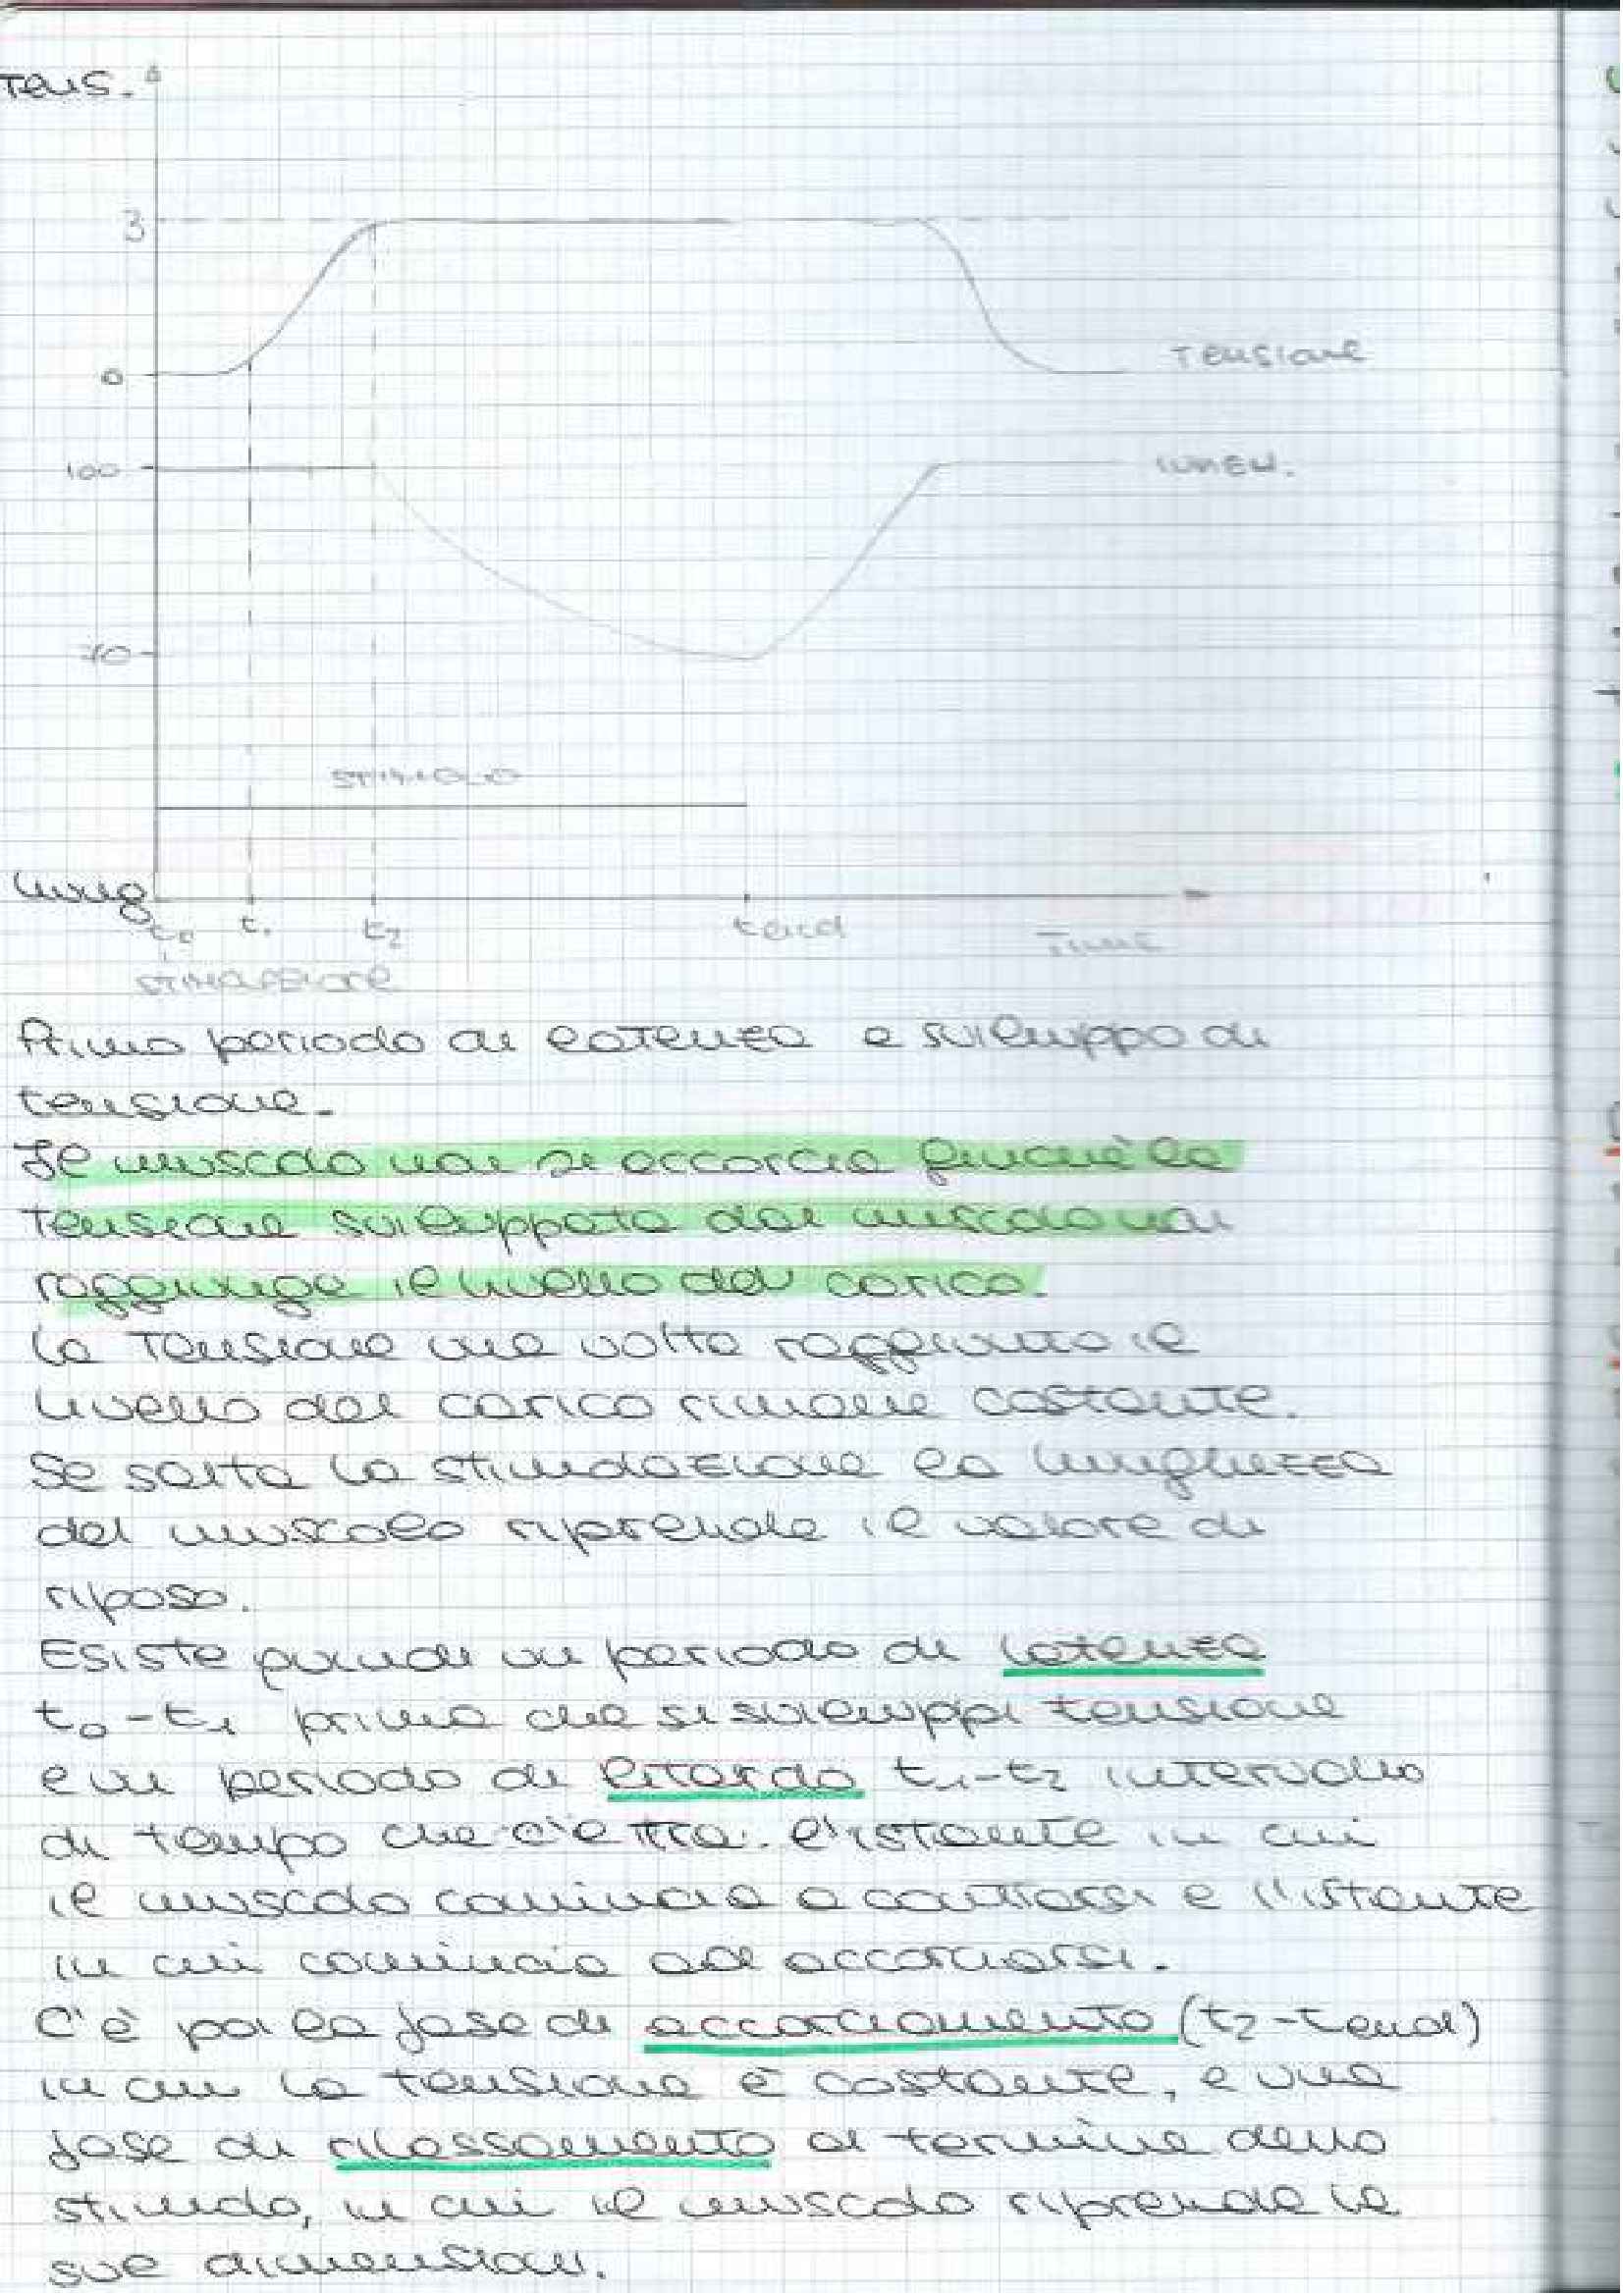 Tens.
3
0
Tensione
100
lungh.
70
stimolo
lung
t0 t1 t2 tend Time
stimolazione
Primo periodo di latenza e sviluppo di
tensione.
Il muscolo non si accorcia finché la
tensione sviluppata dal muscolo non
raggiunge il livello del carico.
La tensione una volta raggiunto il
livello del carico rimane costante.
Se salta la stimolazione la lunghezza
del muscolo riprende il valore di
riposo.
Esiste quindi un periodo di latenza
t0-t1 prima che si sviluppi tensione
e un periodo di ritardo t1-t2 intervallo
di tempo che c'è tra l'istante in cui
il muscolo comincia a contrarsi e l'istante
in cui comincia ad accorciarsi.
C'è poi la fase di accorciamento (t2-tend)
in cui la tensione è costante, e una
fase di rilassamento al termine dello
stimolo, in cui il muscolo riprende le
sue dimensioni.